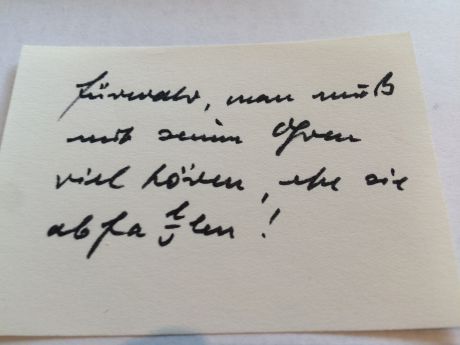 fürwahr, man muß
mit seinen Ohren
viel hören, ehe sie
abfallen!